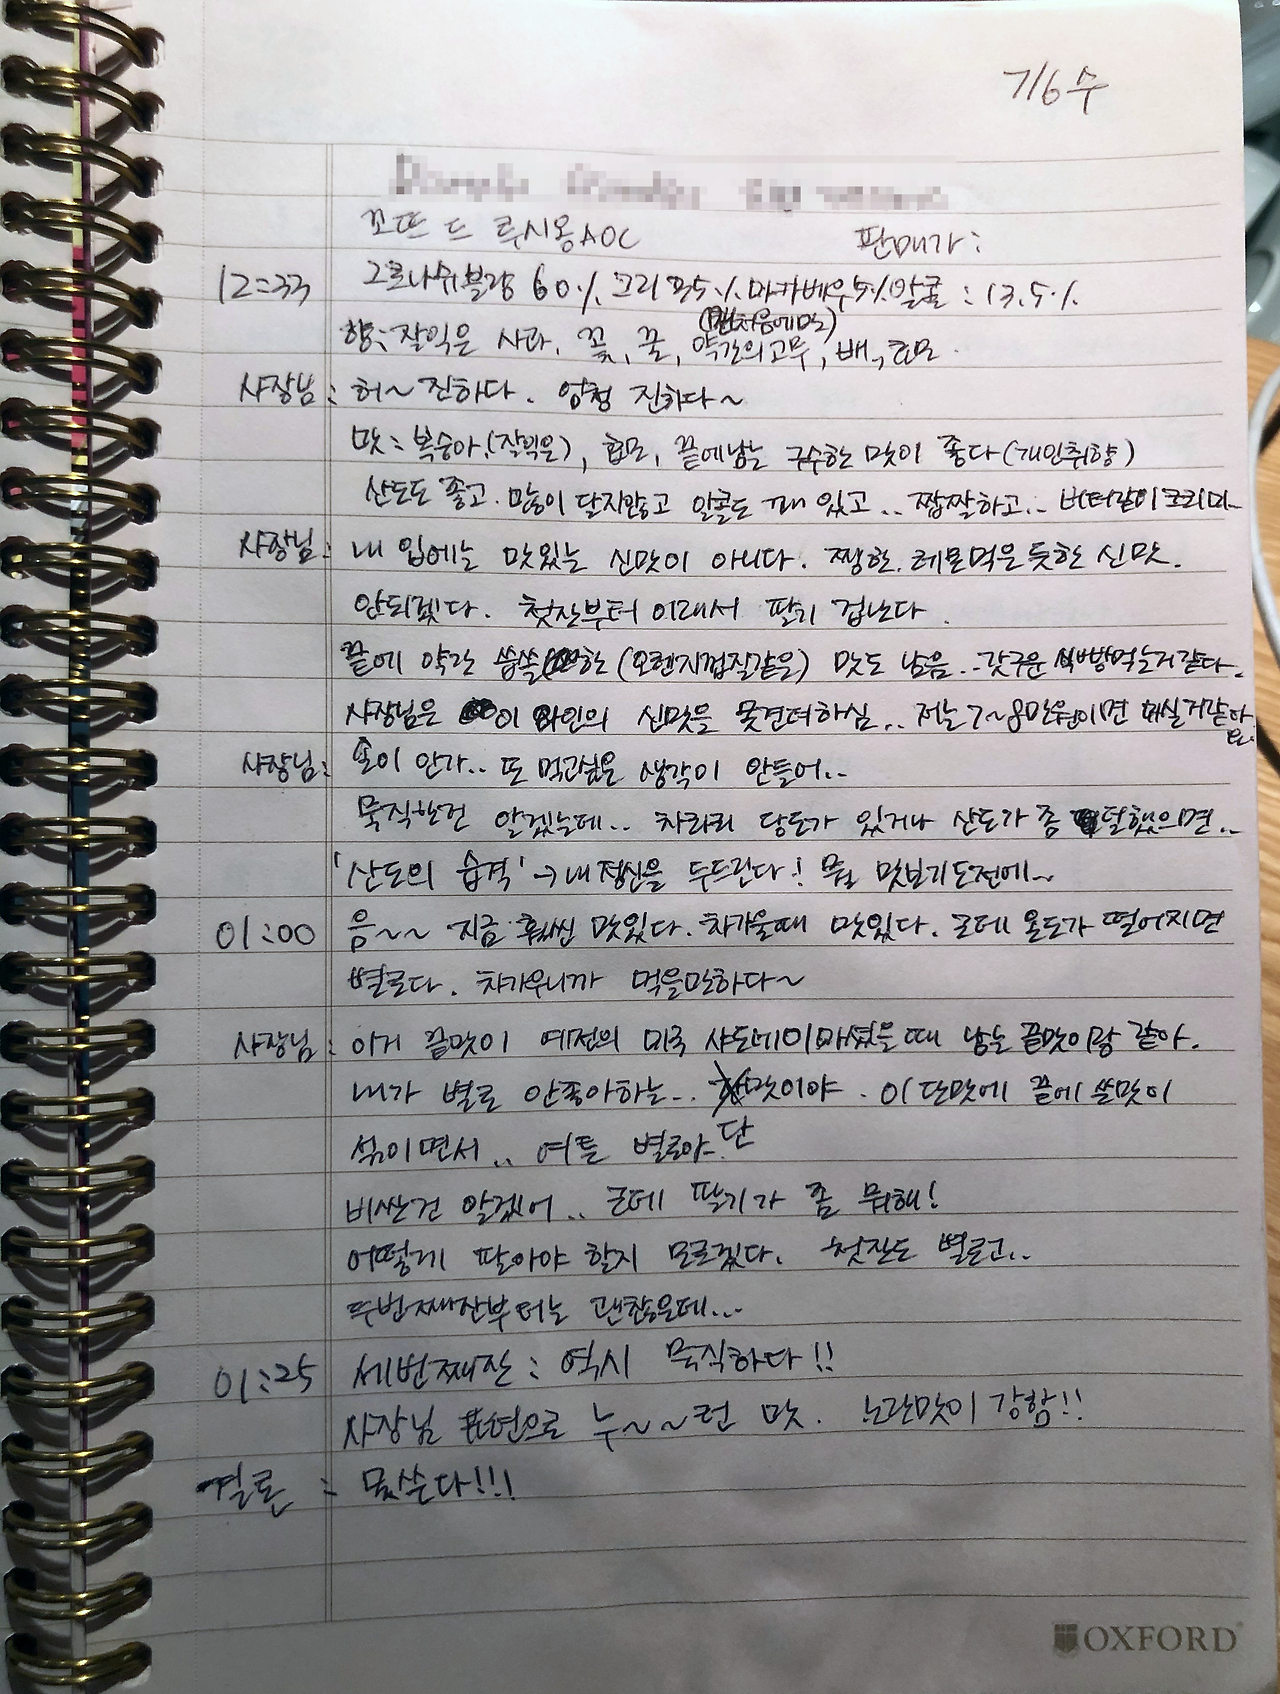 7/6 수
꼬뜨 드 루시옹 AOC 판매가:
12:33 그르나쉬블랑 60% 그리 35% 마카베우 5% 알콜 : 13.5%
(맨처음에만)
향: 잘익은 사과, 꽃, 꿀, 약간의 고무, 배,
사장님: 허~ 진하다. 엄청 진하다~
맛: 복숭아(잘익은), 끝에남는 구수한 맛이 좋다(개인취향)
산도도 좋고. 많이 달지않고 알콜도 꽤 있고.. 짭짤하고.. 버터같이 크리미~
사장님: 내 입에는 맛있는 신맛이 아니다. 쨍한. 레몬먹은듯한 신맛.
안되겠다. 첫잔부터 이래서 팔기 겁난다.
끝에 약간 씁쓸한 (오렌지껍질같은) 맛도 남음.. 갓구운 식빵먹는거같다..
사장님은 이 와인의 신맛을 못견뎌하심.. 저는 7~8만원이면 마실거같아요.
사장님: 손이 안가.. 또 먹고싶은 생각이 안들어..
묵직한건 알겠는데.. 차라리 당도가 있거나 산도가 좀 덜했으면..
'산도의 습격' → 내 정신을 두드린다! 뭘 맛보기도전에~
01:00 음~~ 지금 훨씬 맛있다. 차가울때 맛있다. 근데 온도가 떨어지면
별로다. 차가우니까 먹을만하다~
사장님: 이거 끝맛이 예전의 미국 샤도네이 마셨을때 남는 끝맛이랑 같아.
내가 별로 안좋아하는.. 맛이야. 이 단맛에 끝에 쓴맛이
섞이면서.. 여튼 별로야. 단
비싼건 알겠어.. 근데 팔기가 좀 뭐해!
어떻게 팔아야 할지 모르겠다. 첫잔도 별로고..
두번째잔부터는 괜찮은데...
01:25 세번째잔: 역시 묵직하다!!
사장님 표현으로 누~~런 맛. 노란맛이 강함!!
결론: 못쓴다!!!
OXFORD